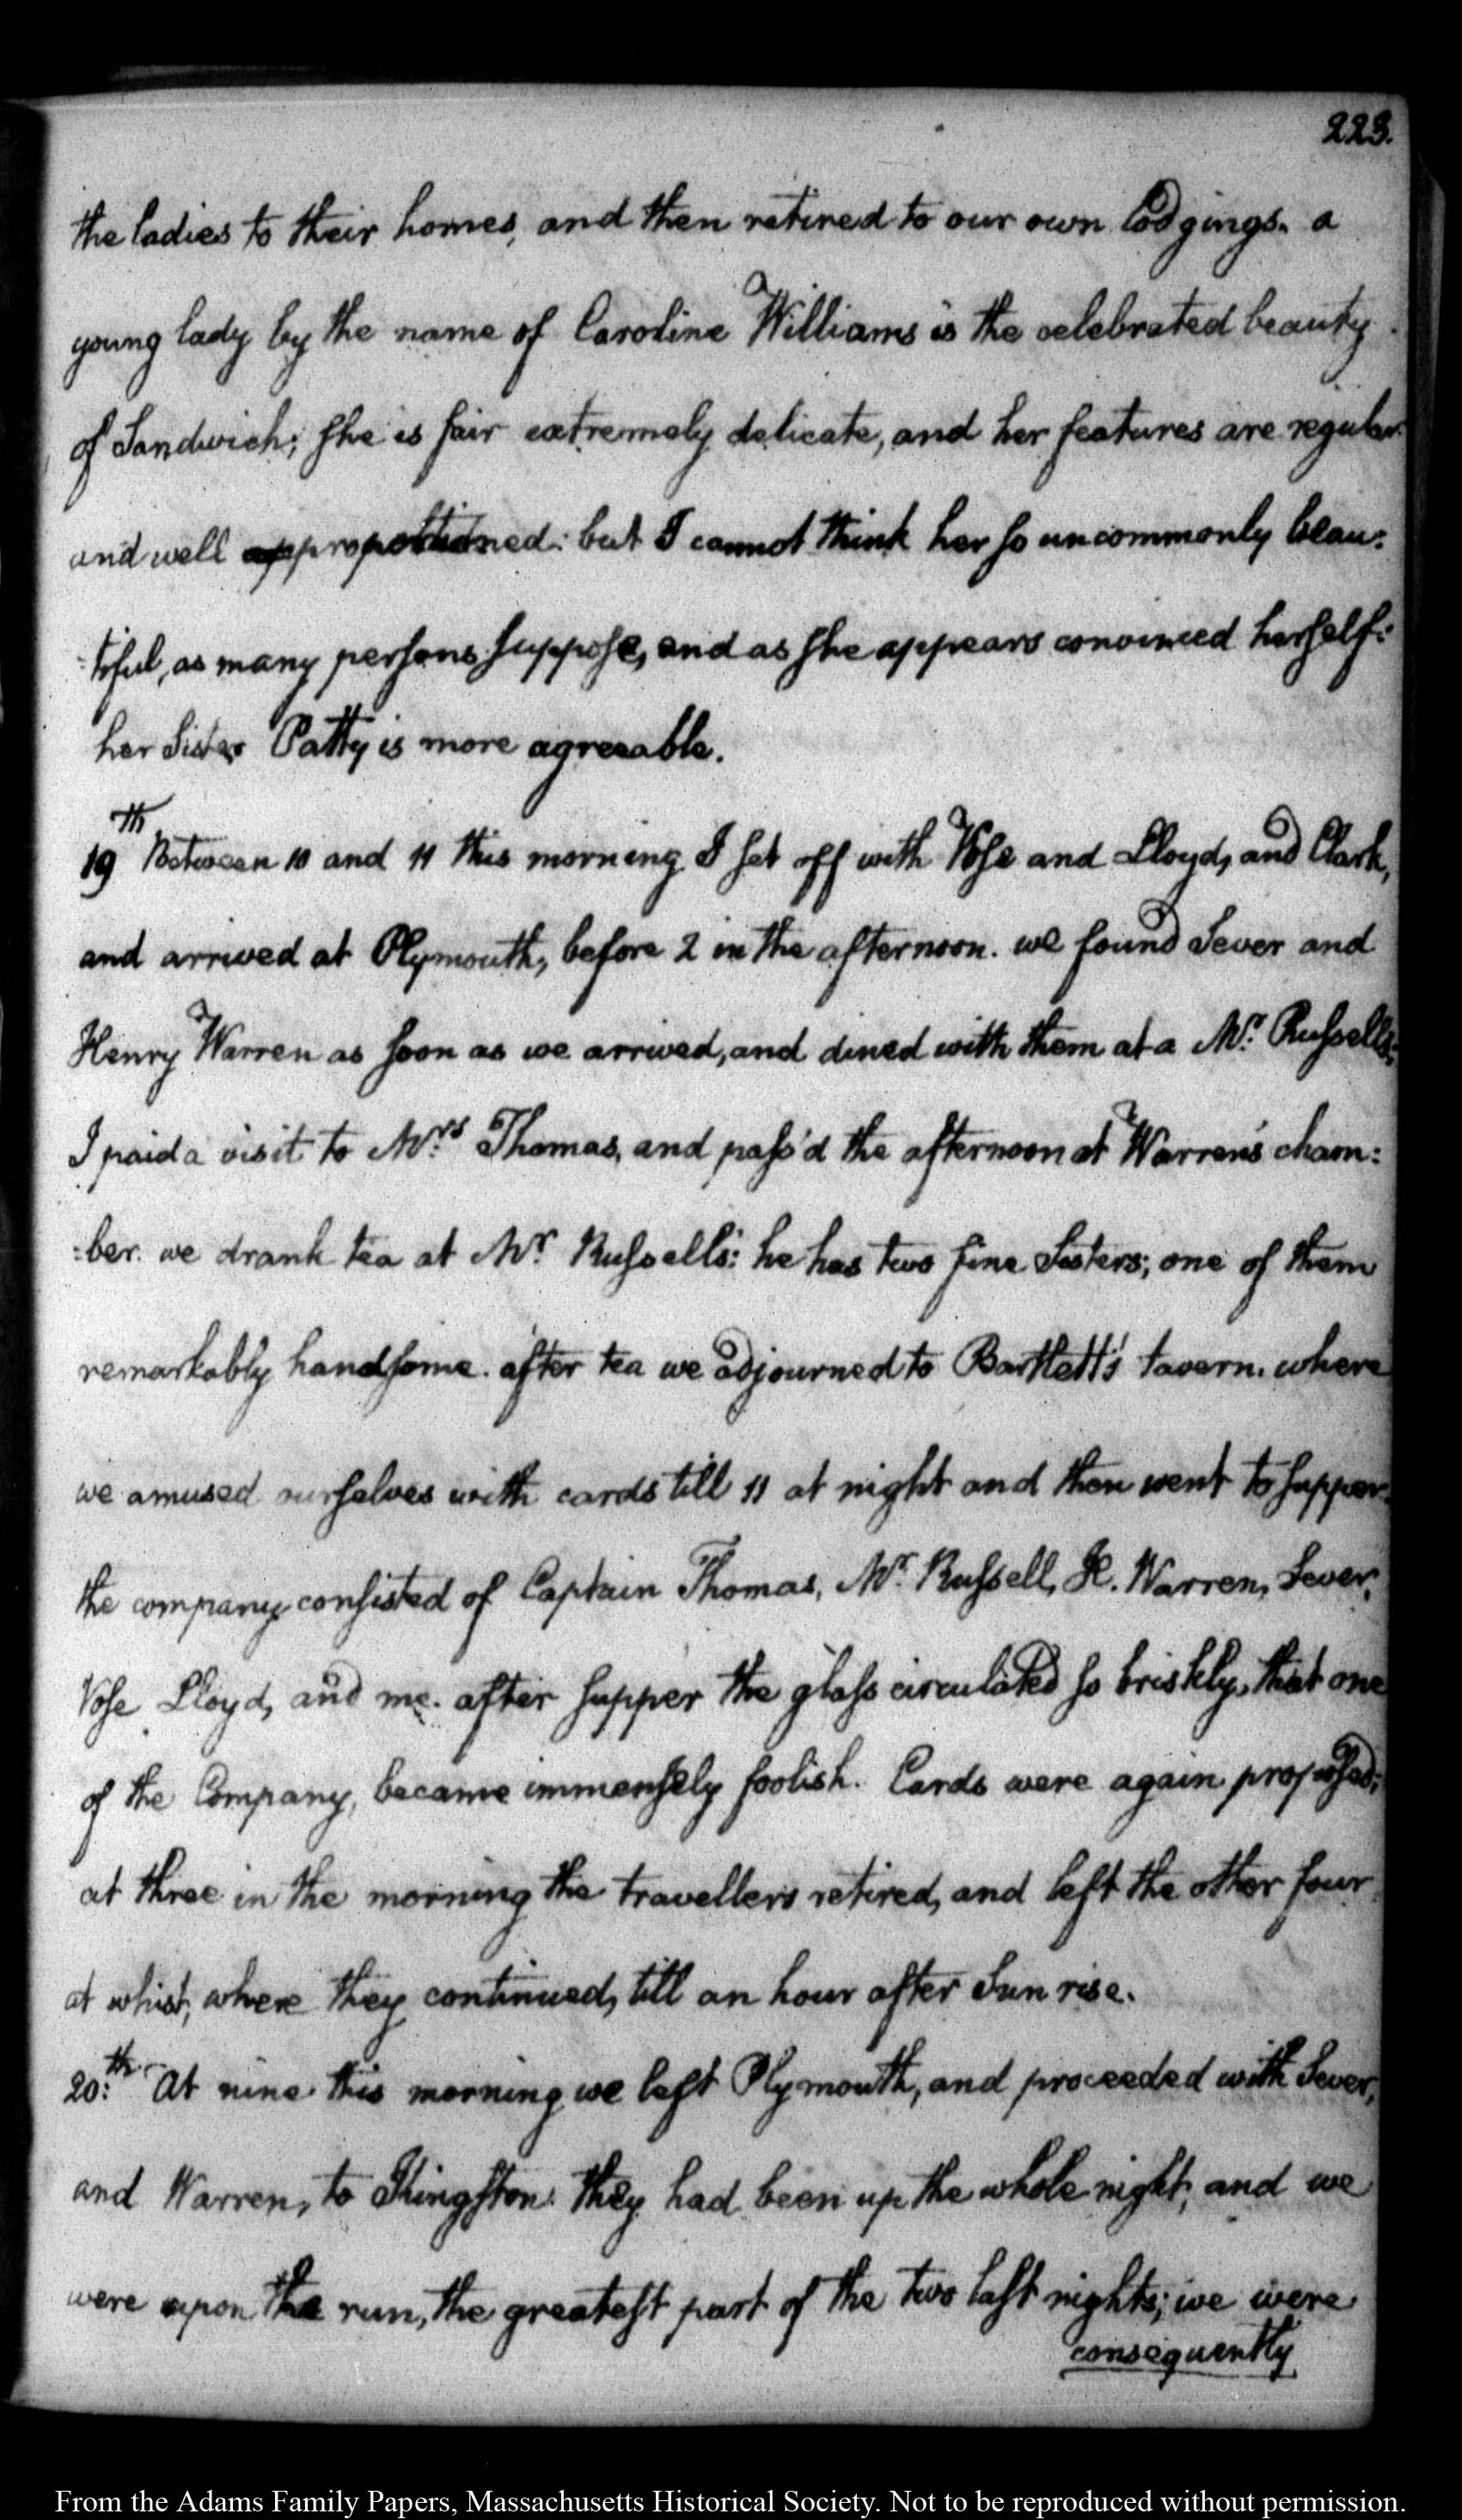 223.
the ladies to their homes, and then retired to our own lodgings. a
young lady by the name of Caroline Williams is the celebrated beauty
of Sandwich; she is fair extremely delicate, and her features are regular
and well proportioned: but I cannot think her so uncommonly beau:
:tiful, as many persons suppose, and as she appears convinced herself:
her Sister Patty is more agreeable.
19th Between 10 and 11 this morning I set off with Vose and Lloyd, and Clark,
and arrived at Plymouth, before 2 in the afternoon. we found Sever and
Henry Warren as soon as we arrived, and dined with them at a Mr. Russells;
I paid a visit to Mrs. Thomas, and pass'd the afternoon at Warren's cham:
:ber. we drank tea at Mr. Russells: he has two fine Sisters; one of them
remarkably handsome. after tea we adjourned to Bartlett's tavern. where
we amused ourselves with cards till 11 at night and then went to supper.
the company consisted of Captain Thomas, Mr. Russell, H. Warren, Sever,
Vose Lloyd, and me. after supper the glass circulated so briskly, that one
of the Company, became immensely foolish. Cards were again proposed;
at three in the morning the travellers retired, and left the other four
at whist, where they continued, till an hour after Sun rise.
20:th At nine this morning we left Plymouth, and proceeded with Sever,
and Warren, to Kingston. they had been up the whole night, and we
were upon the run, the greatest part of the two last nights; we were
consequently
From the Adams Family Papers, Massachusetts Historical Society. Not to be reproduced without permission.